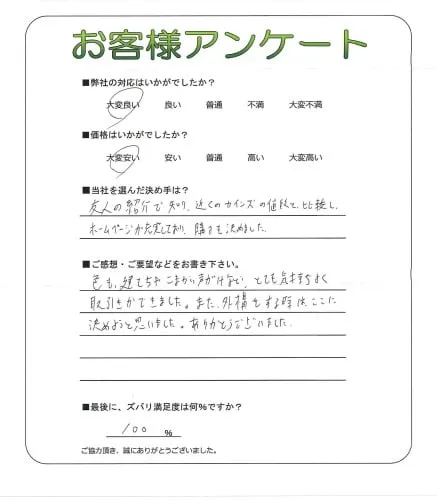 お客様アンケート
■弊社の対応はいかがでしたか？
大変良い 良い 普通 不満 大変不満
■価格はいかがでしたか？
大変安い 安い 普通 高い 大変高い
■当社を選んだ決め手は？
友人の紹介で知り、近くのカインズの値段と、比較し、
ホームページが充実しており、購入を決めました。
■ご感想・ご要望などをお書き下さい。
色も、建てちゃ こまかい がなく、とても気持ちよく
取引きができました。また、外構をする時は、ここに
決めようと思いました。ありがとうございました。
■最後に、ズバリ満足度は何%ですか？
100 %
ご協力頂き、誠にありがとうございました。